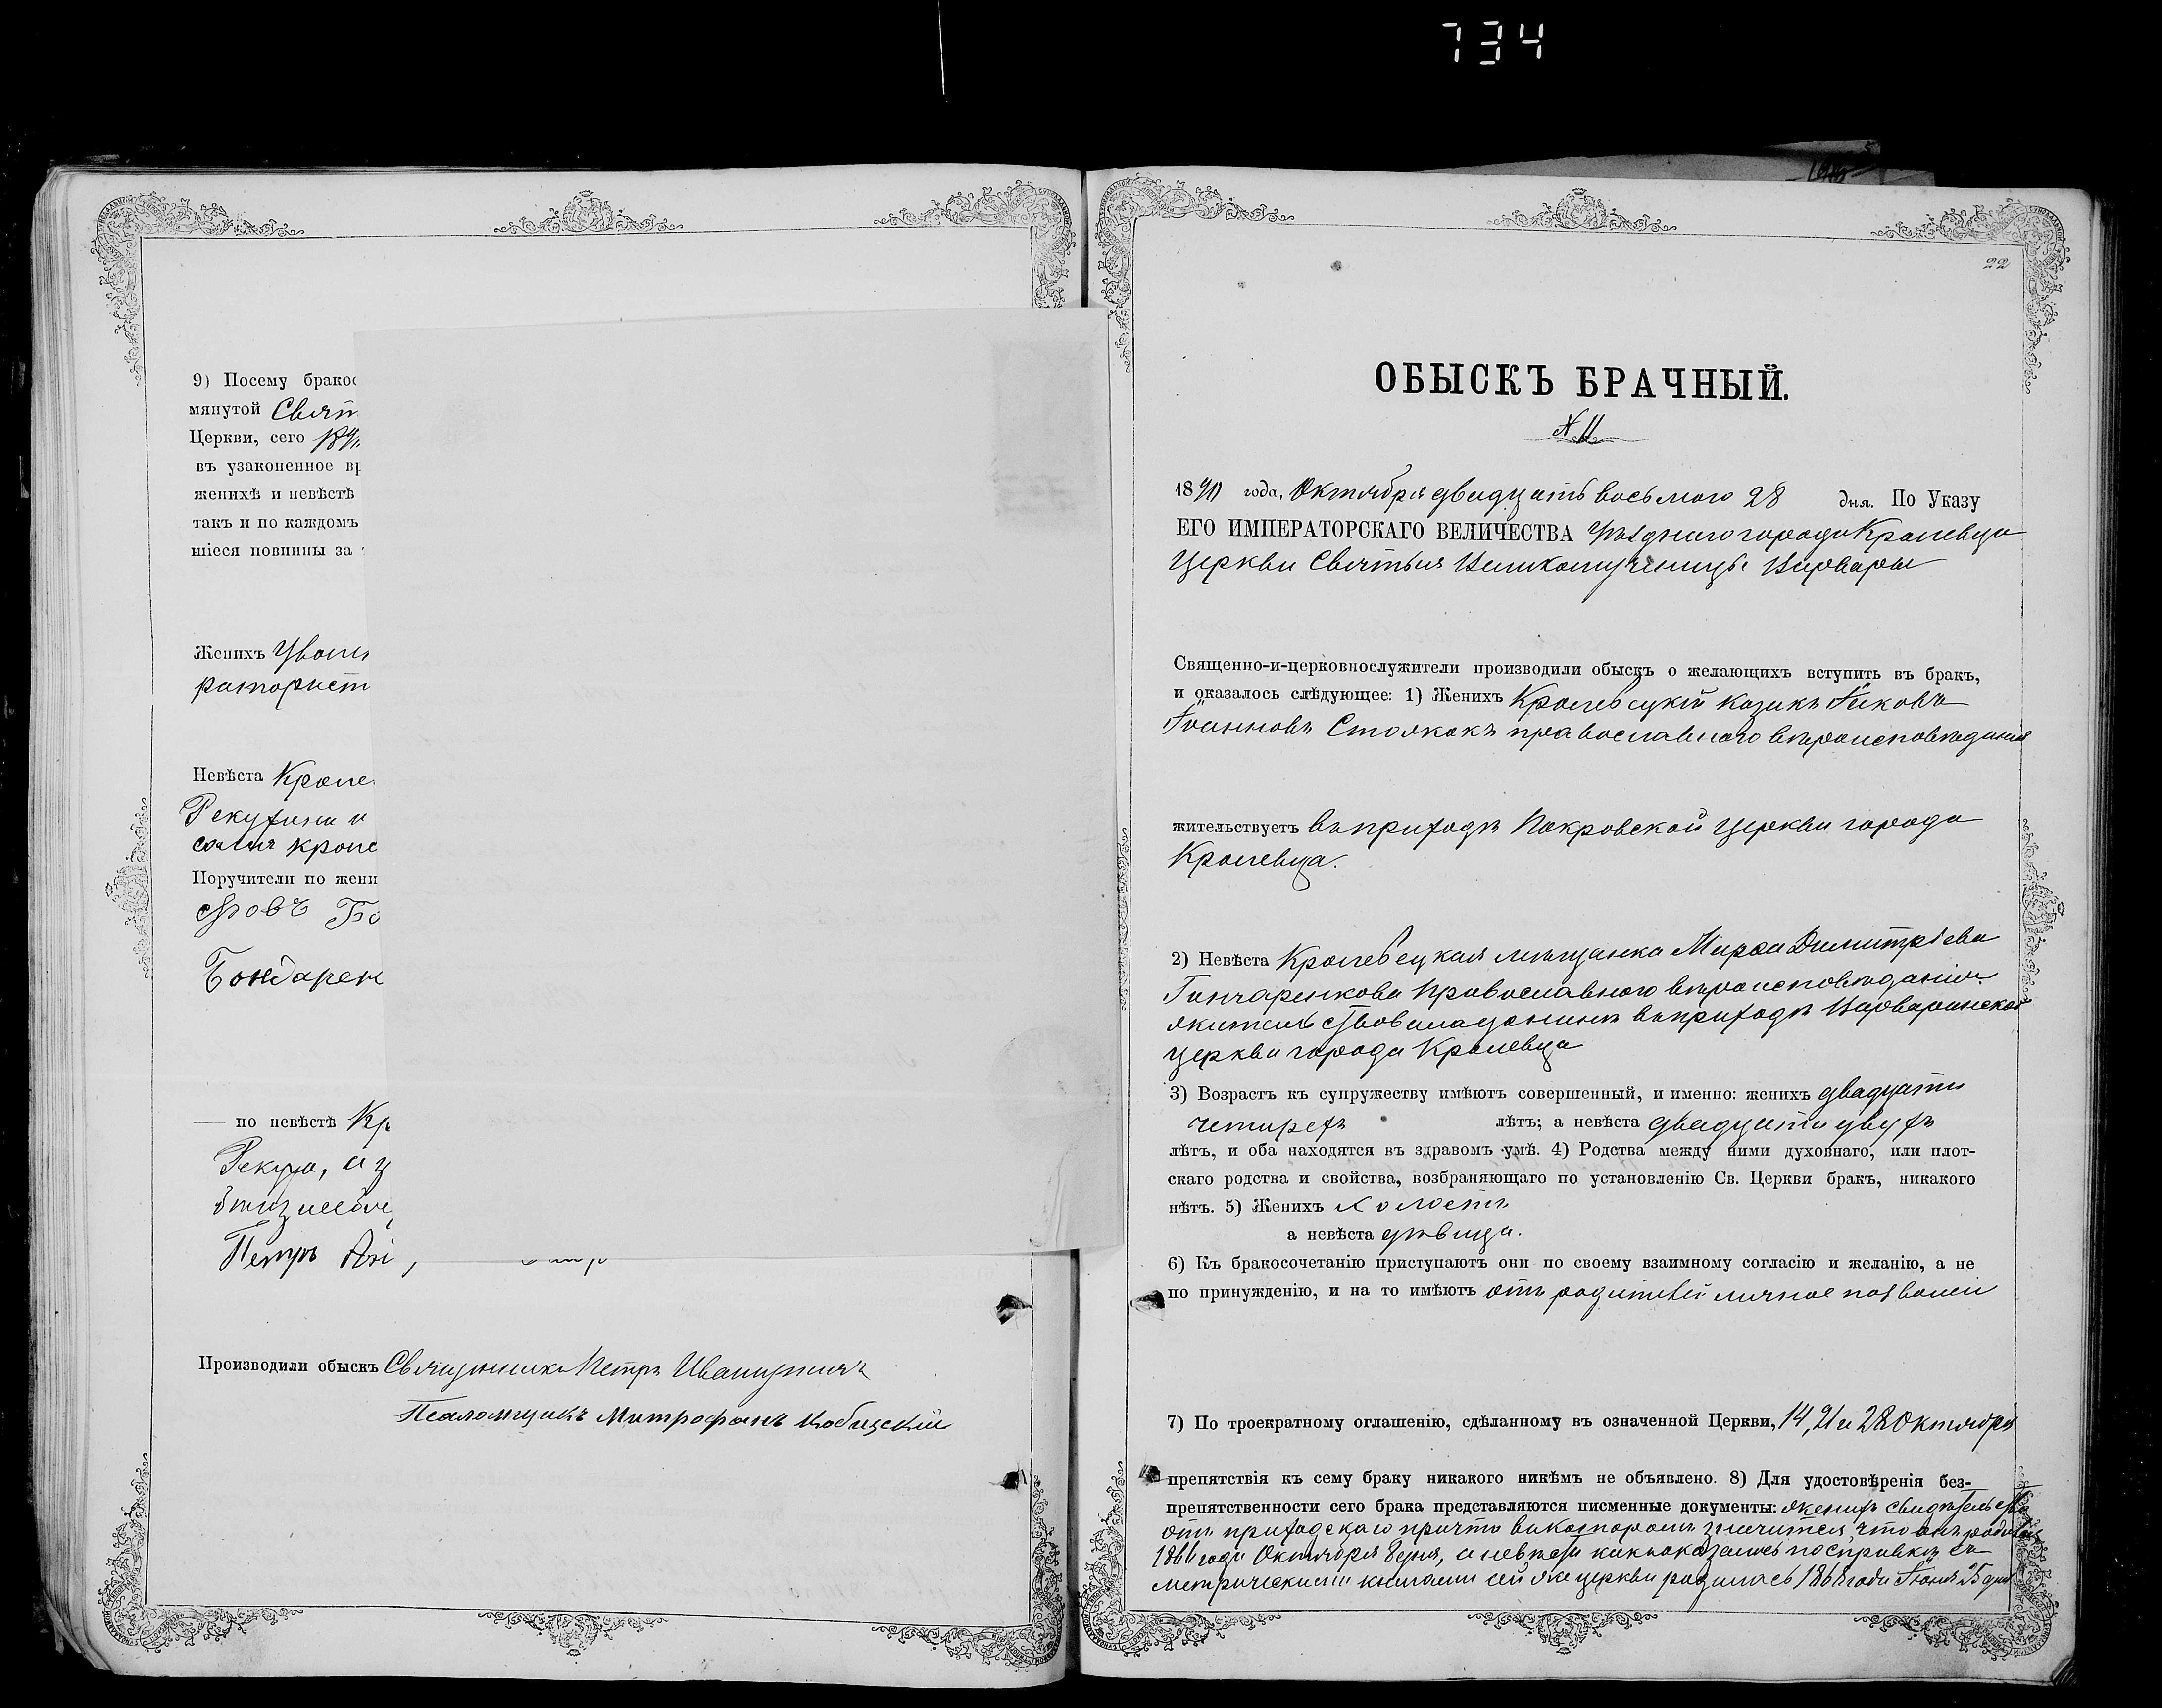 734
9) Посему бракос
мянутой Свят
Церкви, сего
въ узаконенное вр
женихѣ и невѣстѣ
такъ и по каждомъ
шіеся повинны за
Женихъ Увол
Невѣста Кроле
Рекухи
Поручители по жени
Бо
Бондарен
— по невѣстѣ Кр
Рекуха, а з
Петръ
Производили обыскъ Священникъ Петръ
Псаломщикъ Митрофанъ
22
ОБЫСКЪ БРАЧНЫЙ.
№ 11
1890 года, Октября двадцать восьмого 28 дня. По Указу
ЕГО ИМПЕРАТОРСКАГО ВЕЛИЧЕСТВА Уѣзднаго города Кролевца
Церкви Святыя Великомученицы Варвары
Священно-и-церковнослужители производили обыскъ о желающихъ вступить въ бракъ,
и оказалось слѣдующее: 1) Женихъ Кролевецкій козакъ Іяковъ
Іоанновъ Стоякокъ православнаго вѣроисповѣданія
жительствуетъ въ приходѣ Покровской церкви города
Кролевца.
2) Невѣста Кролевецкая мѣщанка Марѳа Димитріева
Гончаренкова православнаго вѣроисповѣданія
жительствовала донынѣ въ приходѣ Варваринской
церкви города Кролевца
3) Возрастъ къ супружеству имѣютъ совершенный, и именно: женихъ двадцати
четирехъ лѣтъ; а невѣста двадцати двухъ
лѣтъ, и оба находятся въ здравомъ умѣ. 4) Родства между ними духовнаго, или плот-
скаго родства и свойства, возбраняющаго по установленію Св. Церкви бракъ, никакого
нѣтъ. 5) Женихъ холостъ
а невѣста дѣвица.
6) Къ бракосочетанію приступаютъ они по своему взаимному согласію и желанію, а не
по принужденію, и на то имѣютъ отъ родителей личное позволеніе
7) По троекратному оглашенію, сдѣланному въ означенной Церкви, 14, 21 и 28 Октября
препятствія къ сему браку никакого никѣмъ не объявлено. 8) Для удостовѣренія без-
препятственности сего брака представляются писменные документы: женихъ свидѣтельство
отъ приходскаго причта въ которомъ значится, что онъ родился
1866 года Октября 8 дня, а невѣста какъ оказалось по справкѣ съ
метрическими книгами сей же церкви родилась 1868 года Іюня 25 дня